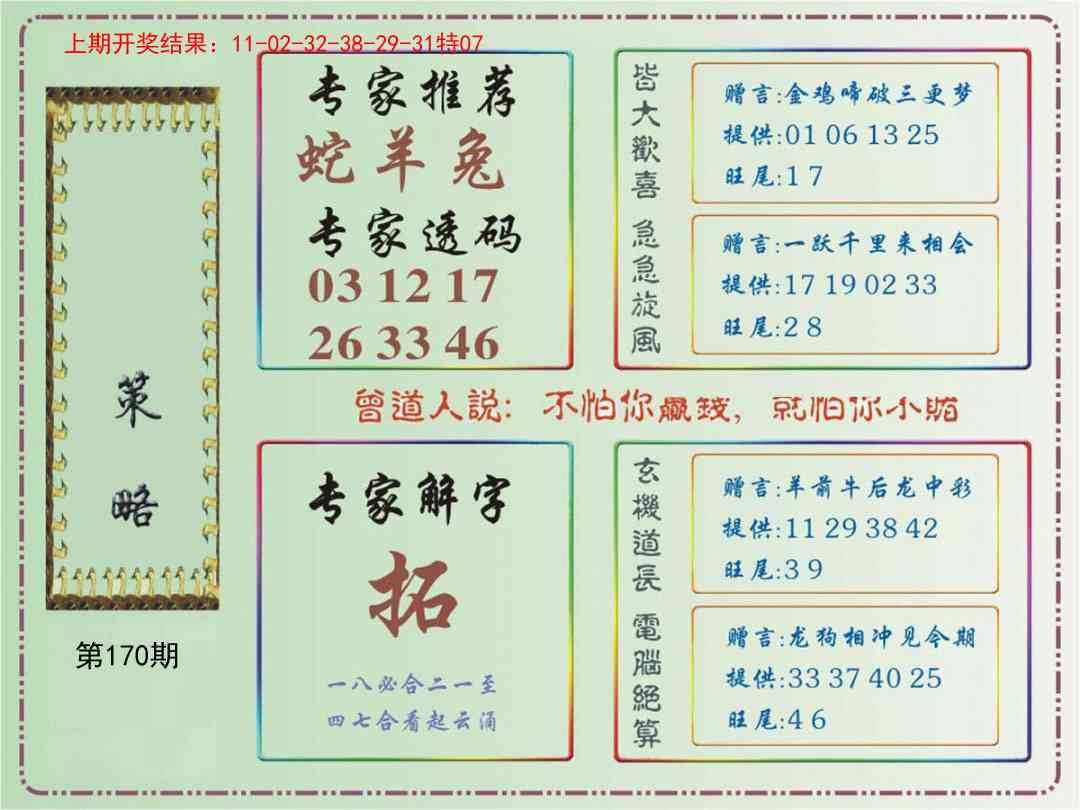 上期开奖结果：11-02-32-38-29-31特07
策略
第170期
专家推荐
蛇羊兔
专家透码
03 12 17
26 33 46
皆大歡喜
赠言:金鸡啼破三更梦
提供:01 06 13 25
旺尾:1 7
急急旋風
赠言:一跃千里来相会
提供:17 19 02 33
旺尾:2 8
曾道人説：不怕你贏錢，就怕你小賭
专家解字
拓
一八必合二一至
四七合看起云涌
玄機道長
赠言:羊前牛后龙中彩
提供:11 29 38 42
旺尾:3 9
電腦絕算
赠言:龙狗相冲见今期
提供:33 37 40 25
旺尾:4 6